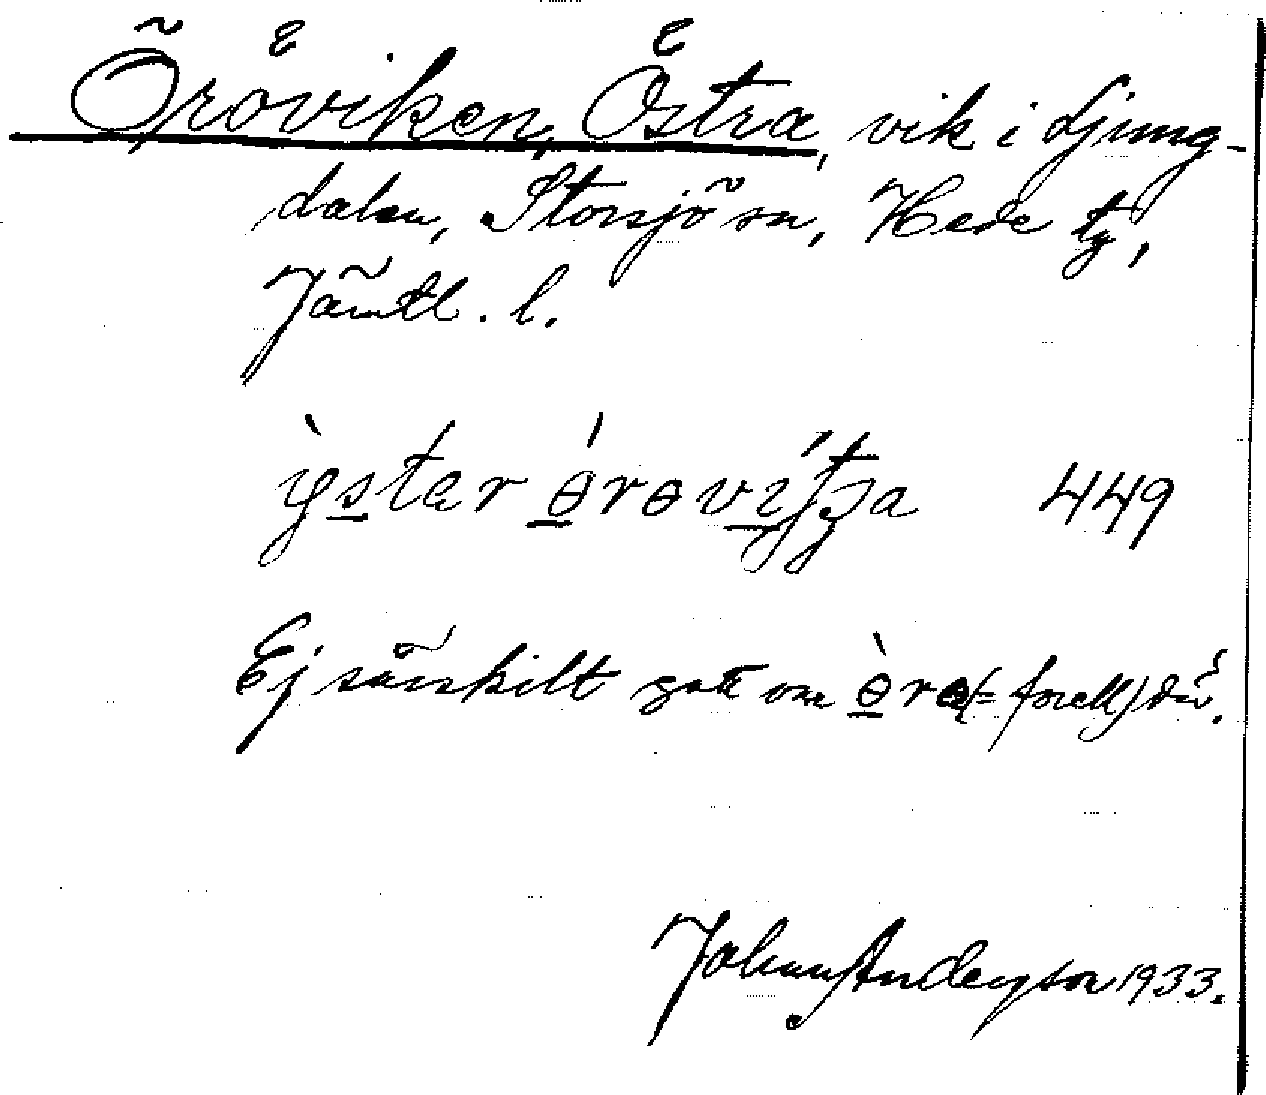 Öröviken, Östra, vik i Ljung-
dalen, Storsjö sn, Hede tg,
Jämtl. l.
ỳster ɵ́rɵ 449
Ej särskilt gott om ɵ̀rɵ (= forell) där.
Johan Anderson 1933.